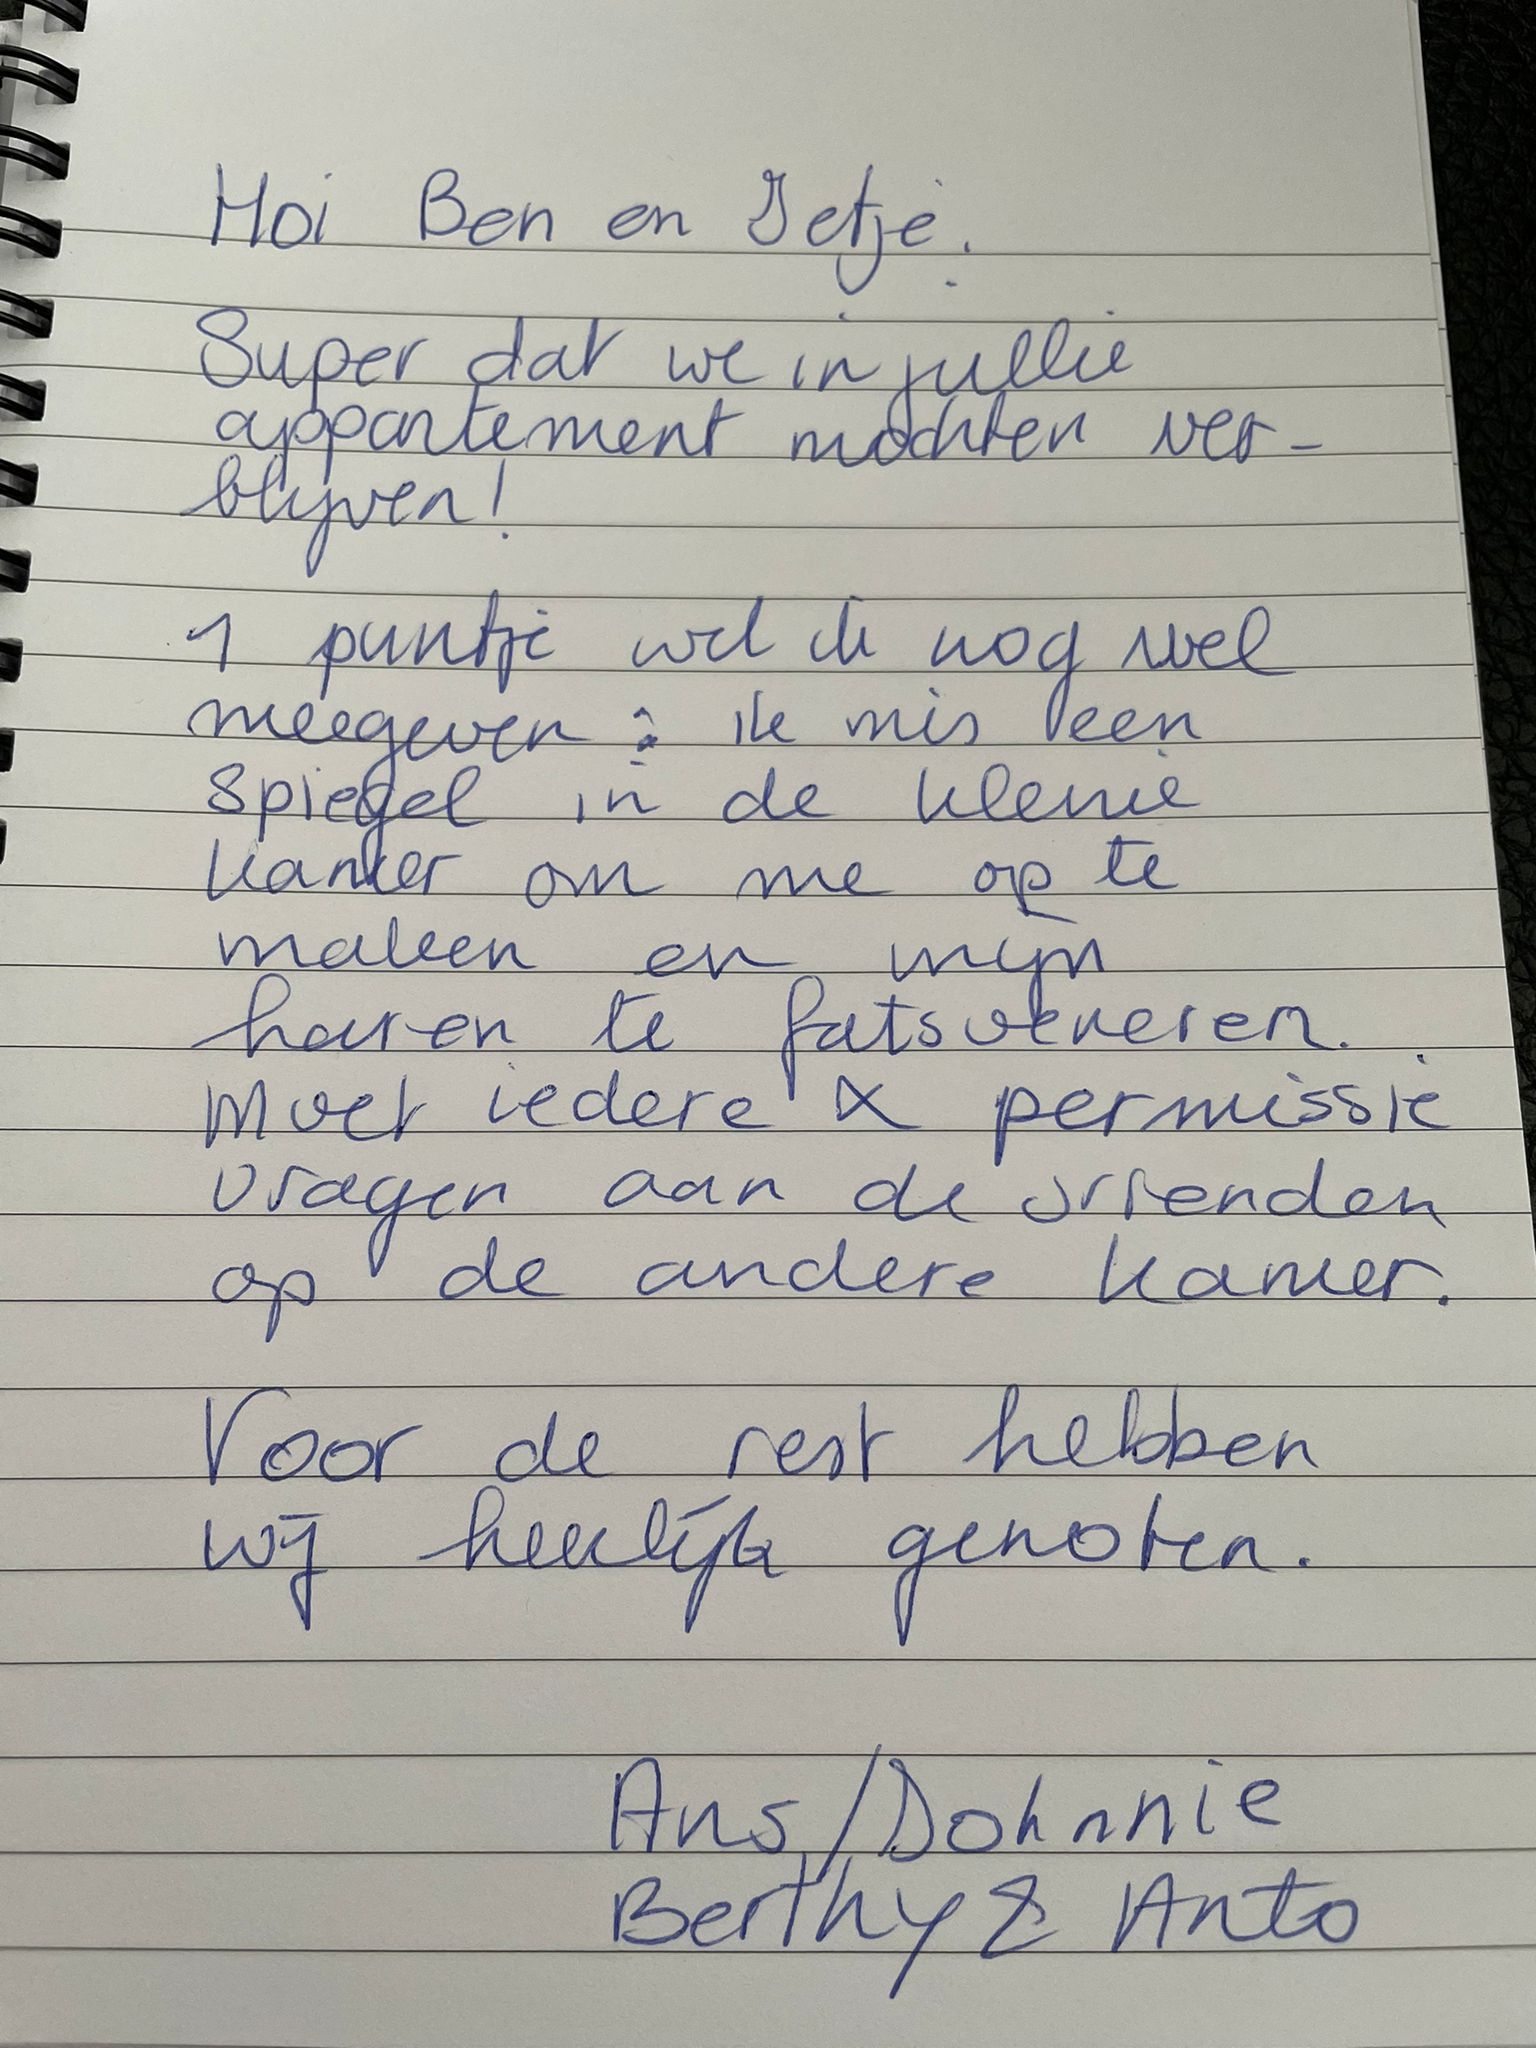 Hoi Ben en Jetje.
Super dat we in jullie
appartement mochten ver-
blijven!
1 puntje wil ik nog wel
meegeven: ik mis een
spiegel in de kleine
kamer om me op te
maken en mijn
haren te fatsoeneren.
Moet iedere x permissie
vragen aan de vrienden
op de andere kamer.
Voor de rest hebben
wij heerlijk genoten.
Ans/Dohnnie
Berthy & Anto